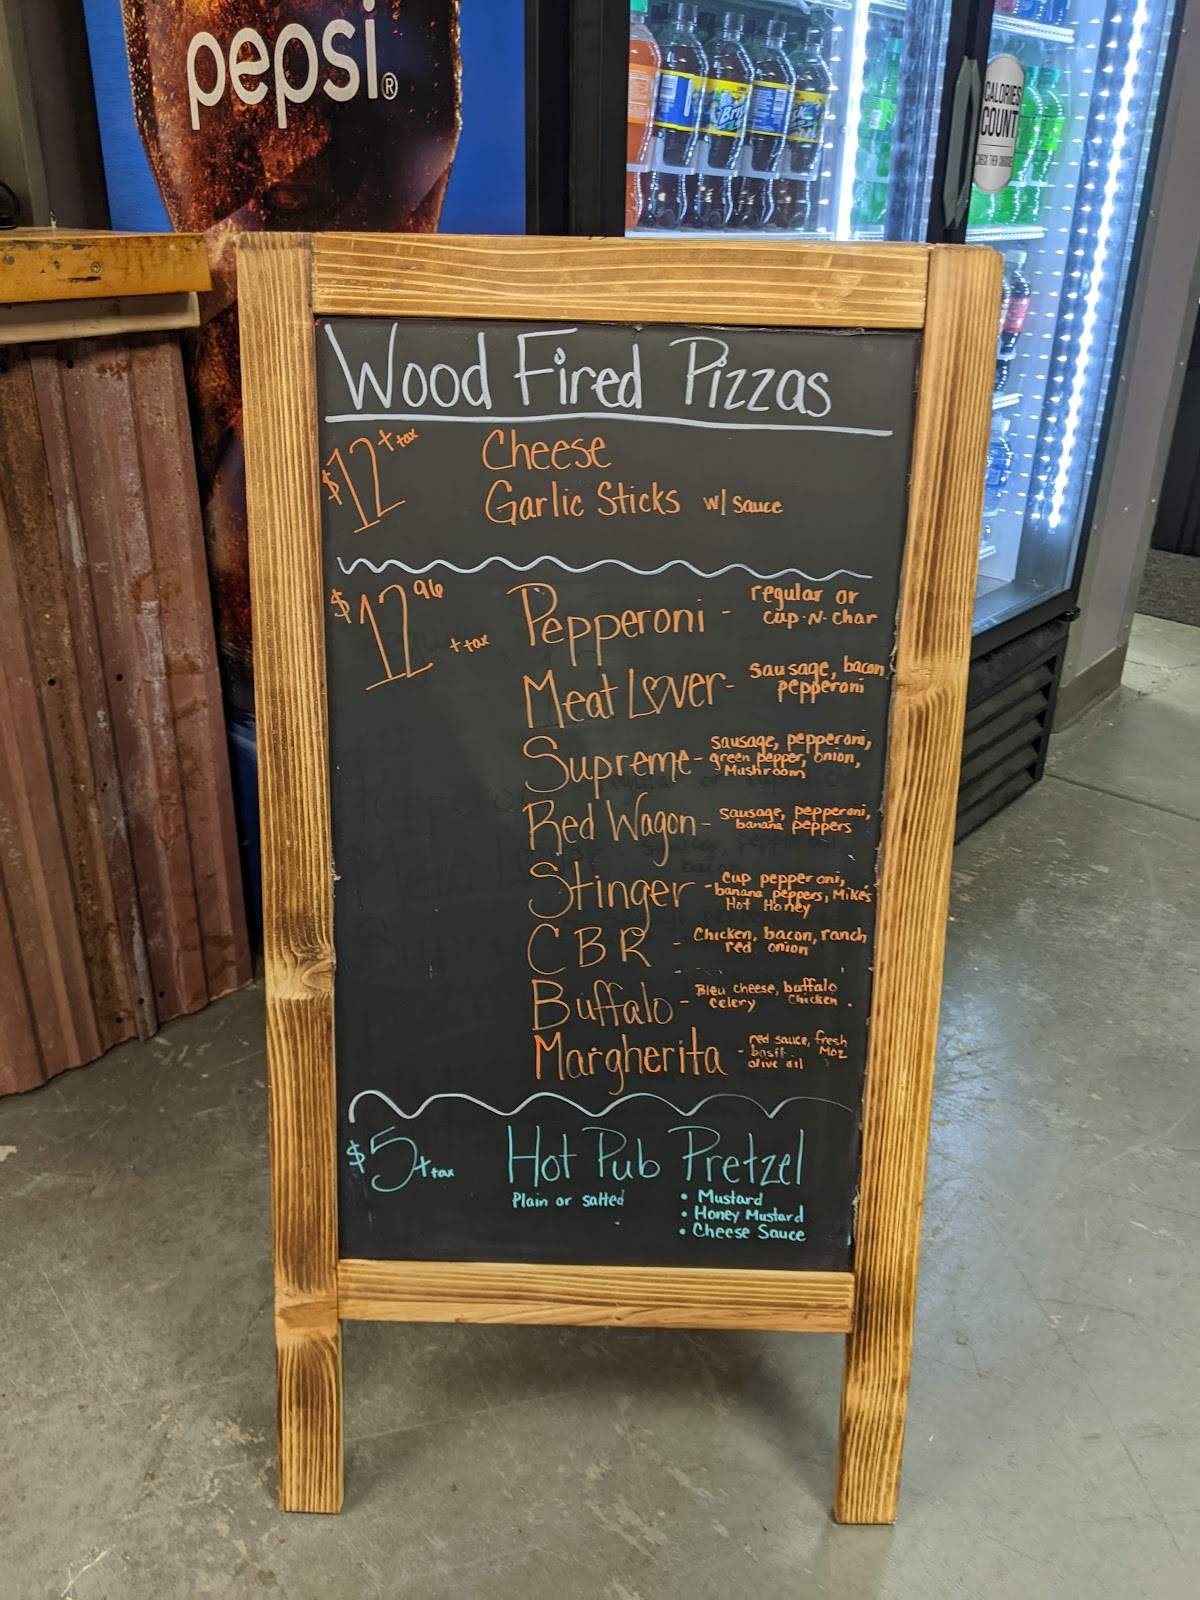 pepsi®
CALORIES
COUNT
Wood Fired Pizzas
$12 + tax
Cheese
Garlic Sticks w/ sauce
$12 96 + tax
Pepperoni - regular or
cup-N-char
Meat Lover - sausage, bacon
pepperoni
Supreme - sausage, pepperoni,
green pepper, onion,
Mushroom
Red Wagon - sausage, pepperoni,
banana peppers
Stinger - Cup pepperoni,
banana peppers, Mike's
Hot Honey
CBR - Chicken, bacon, ranch
red onion
Buffalo - Bleu cheese, buffalo
celery Chicken
Margherita - red sauce, fresh
basil Moz
olive oil
$5 + tax
Hot Pub Pretzel
Plain or salted
• Mustard
• Honey Mustard
• Cheese Sauce